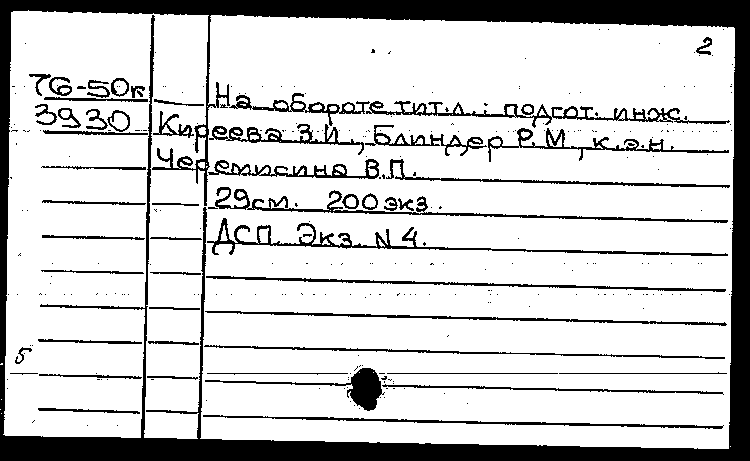 2
76-50к
На обороте тит.л.: подгот. инж.
3930 Киреева З.И., Блиндер Р.М., к.э.н.
Черемисина В.П.
29см. 200экз.
ДСП. Экз. N 4.
5